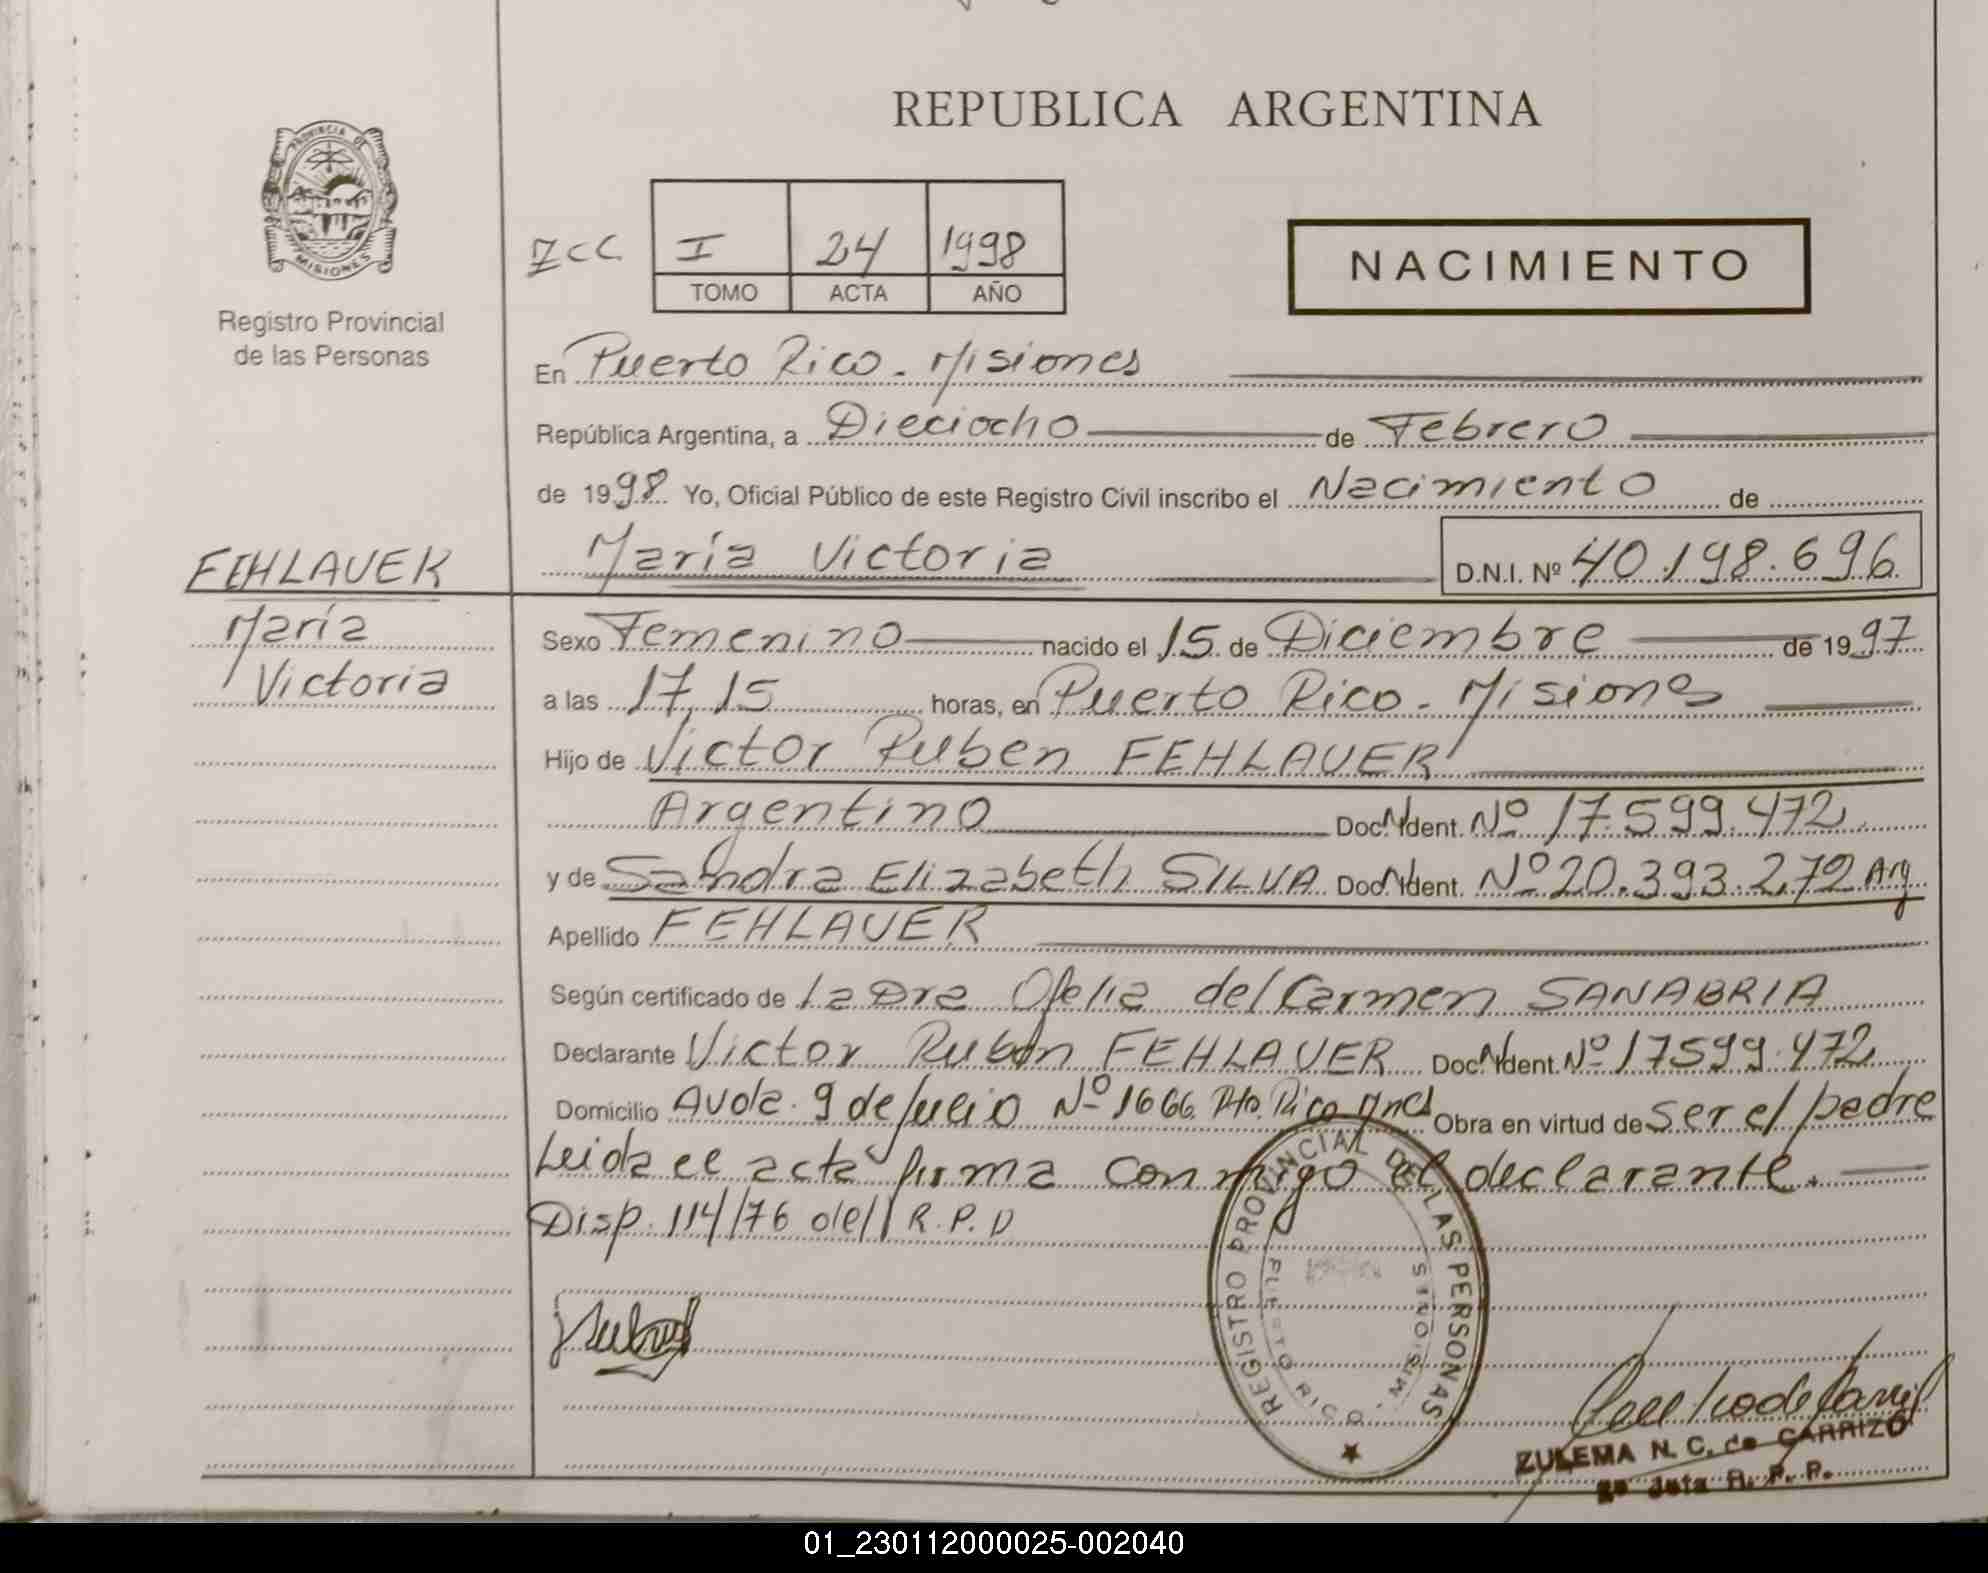 REPUBLICA ARGENTINA
PROVINCIA DE
MISIONES
Registro Provincial
de las Personas
I 24 1998
TOMO ACTA AÑO
NACIMIENTO
En Puerto Rico - Misiones
República Argentina, a Dieciocho de Febrero
de 1998 Yo, Oficial Público de este Registro Civil inscribo el Nacimiento de
María Victoria D.N.I. Nº 40.198.696
FEHLAUER
María
Victoria
Sexo Femenino nacido el 15 de Diciembre de 1997
a las 17,15 horas, en Puerto Rico - Misiones
Hijo de Victor Ruben FEHLAUER
Argentino Doc. Ident. Nº 17.599.472
y de Sandra Elizabeth SILVA Doc. Ident. Nº 20.393.272 Arg
Apellido FEHLAUER
Según certificado de la Dra Ofelia del Carmen SANABRIA
Declarante Victor Ruben FEHLAUER Doc. Ident. Nº 17599.472
Domicilio Avda. 9 de Julio Nº 1666 Pto. Rico Mnes Obra en virtud de Ser el padre
Leida el acta firma conmigo el declarante.
Disp. 114/76 del R.P.P
REGISTRO PROVINCIAL DE LAS PERSONAS
PUERTO RICO - MISIONES
ZULEMA N. C. de CARRIZO
R. P. P.
01_230112000025-002040